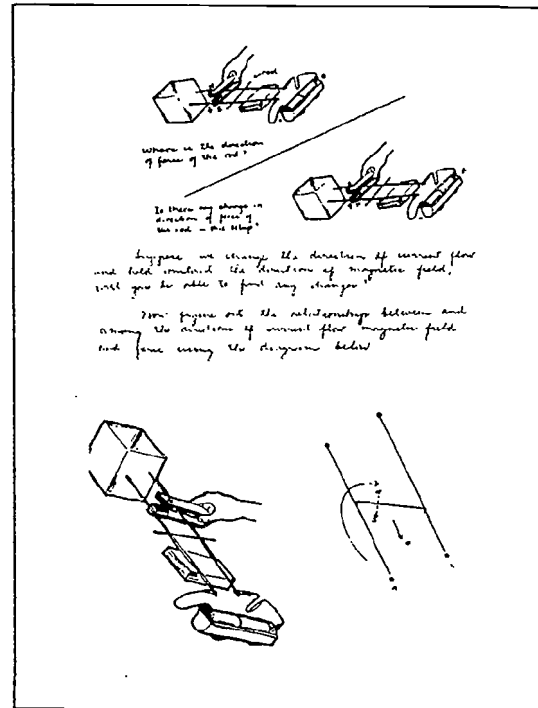 rod
Where is the direction
of force of the rod?
Is there any change in
direction of force of
the rod - this step?
Suppose we change the direction of current flow
and hold constant the direction of magnetic field,
will you be able to find any changes?
Now figure out the relationships between and
among the directions of current flow magnetic field
and force using the diagram below